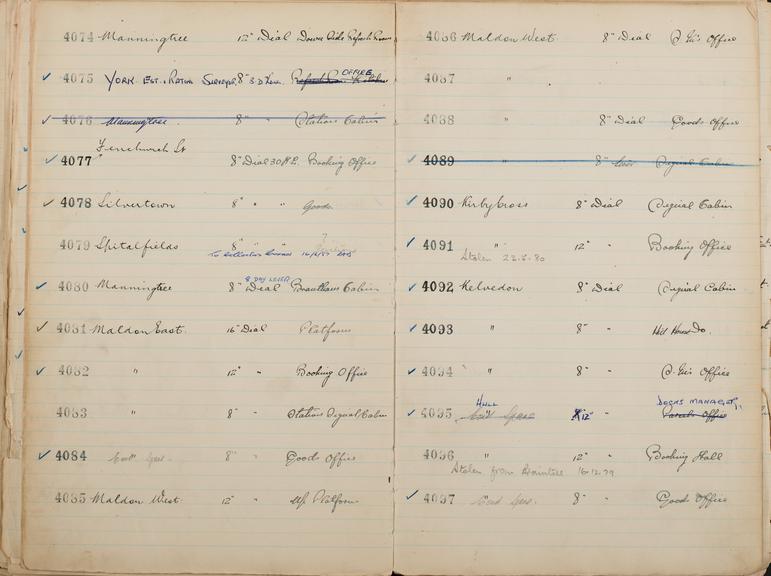 4074 Manningtree 12" Dial Down Side Refresh Room
4075 YORK EST. & RATING SURVEYOR 8" S.D. OFFICE
4076 Manningtree 8" " Station Cabin
4077 Fenchurch St 8" Dial 30 Hr. Booking Office
4078 Silvertown 8" " " Goods
4079 Spitalfields 8" " "
To collectors 16/6/
8 DAY LEVER
4080 Manningtree 8" Dial Brantham Cabin
4081 Maldon East 16" Dial Platform
4082 " 12" " Booking Office
4083 " 8" " Station Signal Cabin
4084 8" " Goods Office
4085 Maldon West 12" " Up Platform
4086 Maldon West 8" Dial Office
4087 "
4088 " 8" Dial Goods Office
4089 " 8" Signal Cabin
4090 Kirby Cross 8" Dial Signal Cabin
4091 " 12" " Booking Office
Stolen 80
4092 Kelvedon 8" Dial Signal Cabin
4093 " 8" " Hill House Do.
4094 " 8" " Office
HULL DOCKS MANAGER,
4095 Spare 12" " Parcels Office
4096 12" " Booking Hall
Stolen from Braintree 16.12.79
4097 8" " Goods Office